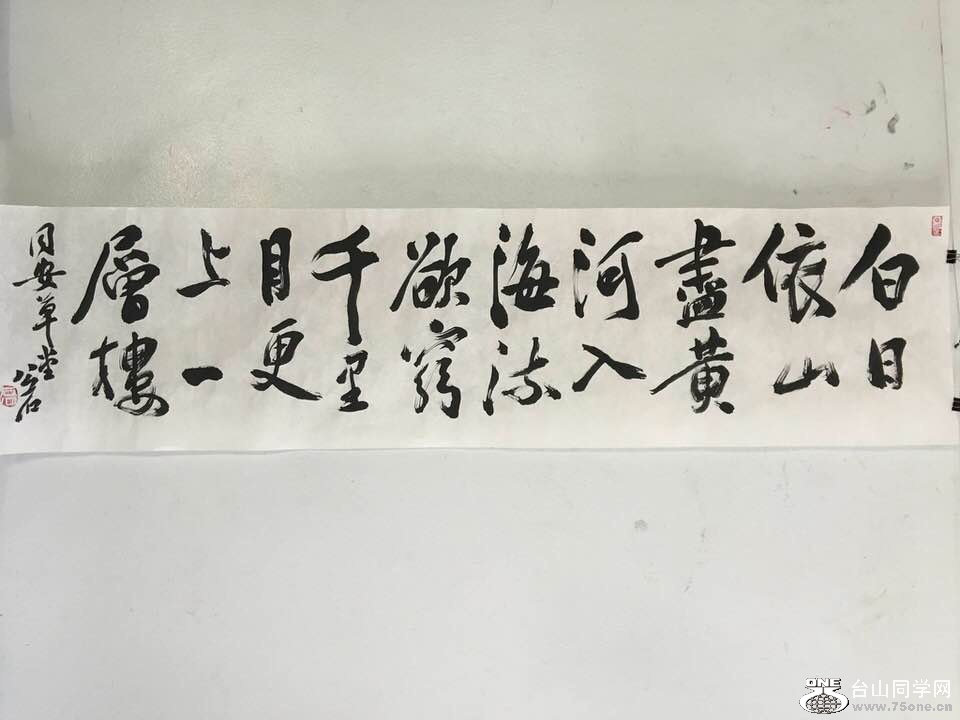 白日
依山
盡黃
河入
海流
欲窮
千里
目更
上一
層樓
同安草堂
ONE
台山同学网
www.75one.cn